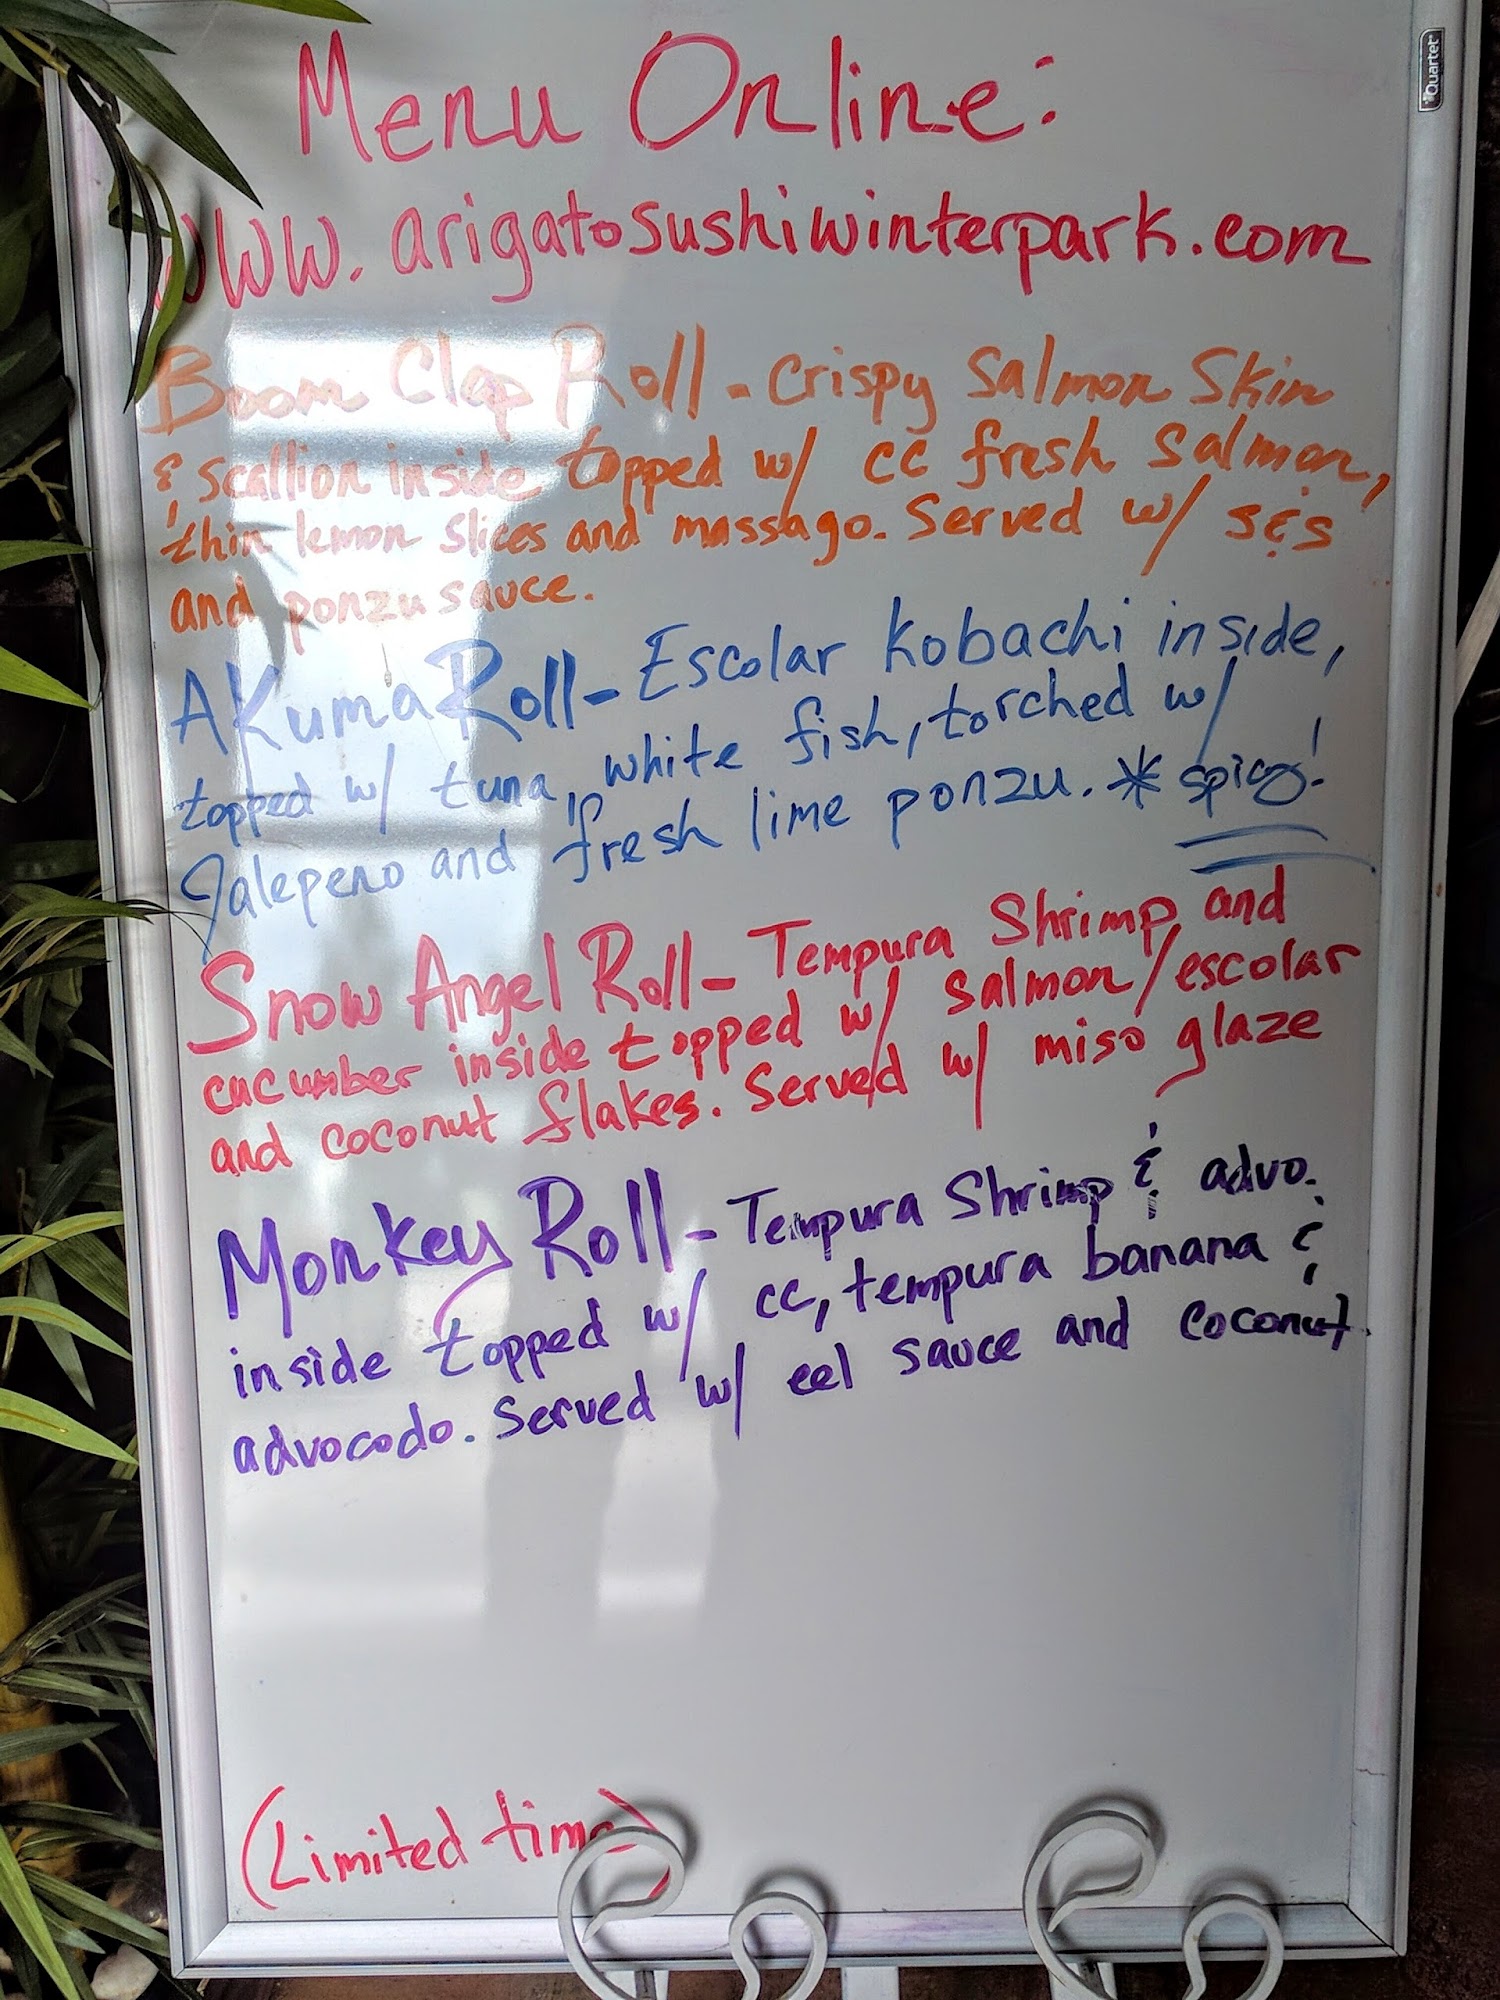 Quartet
Menu Online:
www.arigatosushiwinterpark.com
Boom Clap Roll - Crispy Salmon Skin
& scallion inside topped w/ cc fresh salmon,
thin lemon slices and massago. Served w/ s&s
and ponzu sauce.
AKuma Roll - Escolar kobachi inside,
topped w/ tuna, white fish, torched w/
Jalepeno and fresh lime ponzu. * spicy!
Snow Angel Roll - Tempura Shrimp and
cucumber inside topped w/ salmon/escolar
and coconut flakes. Served w/ miso glaze
Monkey Roll - Tempura Shrimp & advo.
inside topped w/ cc, tempura banana &
advocodo. Served w/ eel sauce and coconut.
(Limited time)